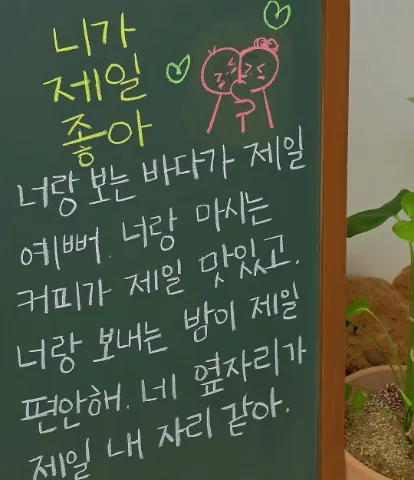 니가
제일
좋아
너랑 보는 바다가 제일
예뻐. 너랑 마시는
커피가 제일 맛있고.
너랑 보내는 밤이 제일
편안해. 네 옆자리가
제일 내 자리 같아.